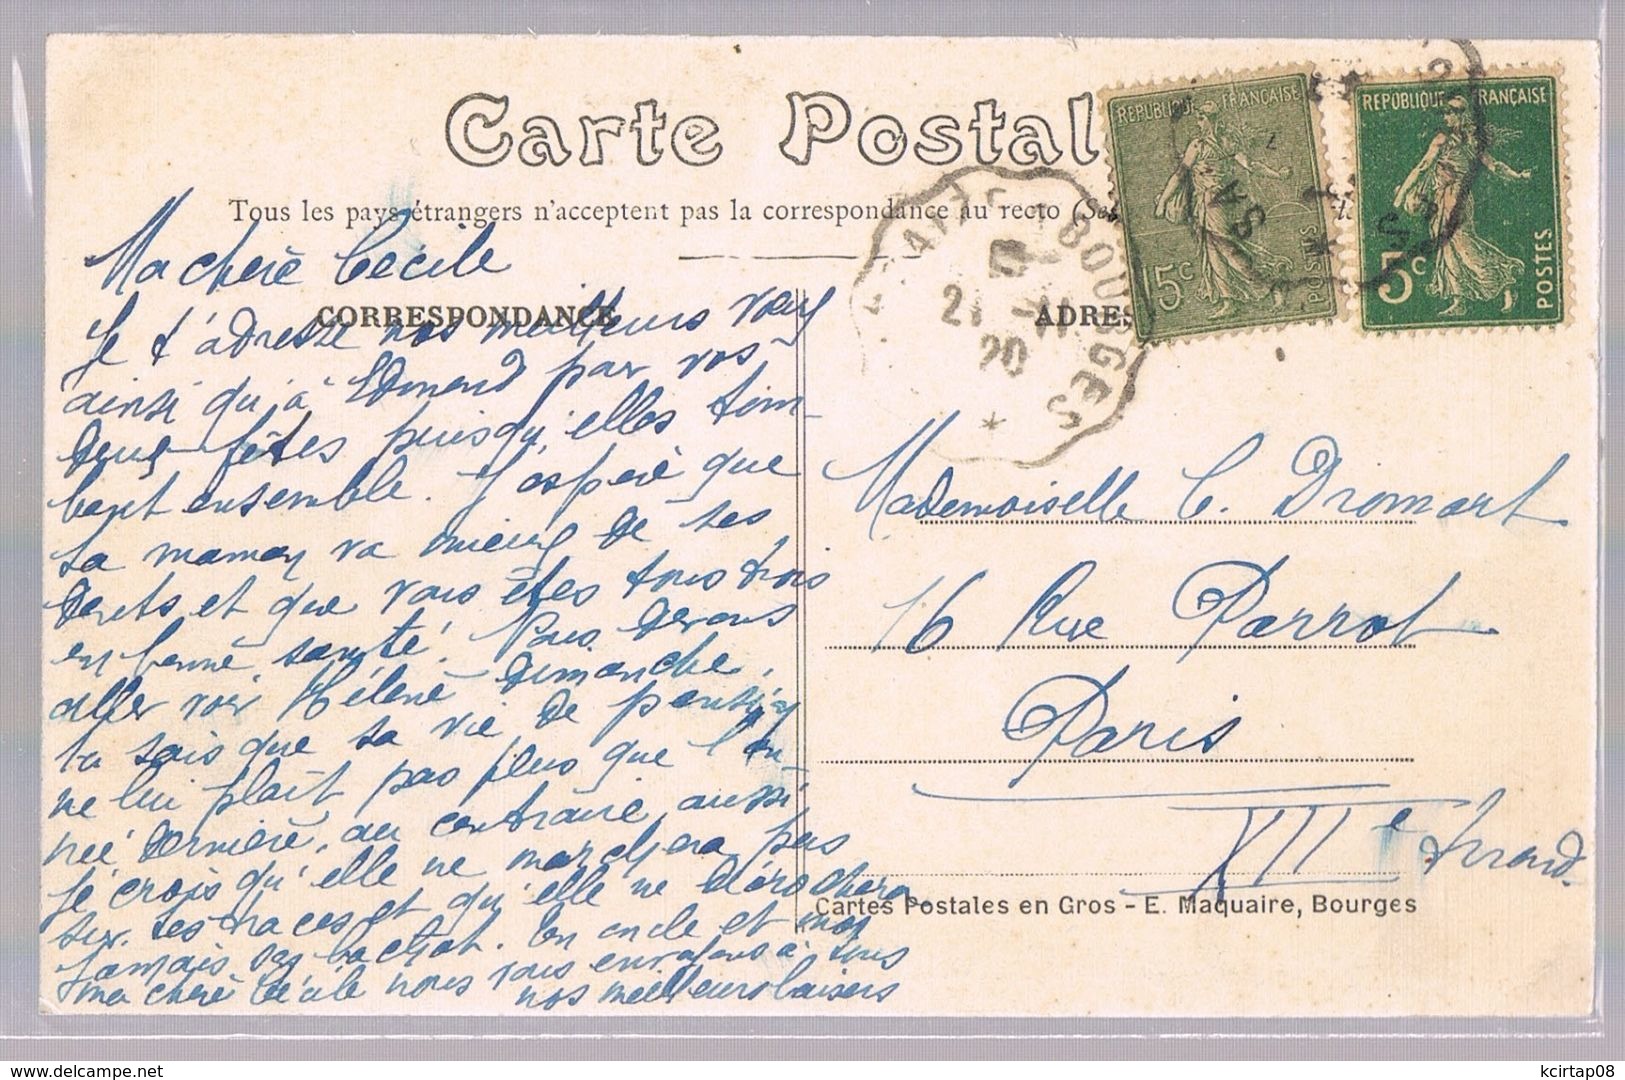 Carte Postale
Tous les pays étrangers n'acceptent pas la correspondance au recto
CORRESPONDANCE
ADRES
REPUBLIQUE FRANÇAISE
15c
POSTES
REPUBLIQUE FRANÇAISE
5c
POSTES
BOURGES
20
Ma chère Cécile
Je t'adresse nos meilleurs vœux
ainsi qu'à Edmond par vos
deux fêtes puisqu'elles tom-
bent ensemble. J'espère que
ta maman va mieux de ses
dents et que vous êtes tous trois
en bonne santé. Nous devons
aller voir Hélène dimanche,
tu sais que sa vie de pension
ne lui plaît pas plus que l'an-
née dernière, au contraire aussi
je crois qu'elle ne marchera pas
sur tes traces et qu'elle ne décrochera
jamais son bachot. Ton oncle et moi
ma chère Cécile nous vous envoyons à tous
nos meilleurs baisers
Mademoiselle C. Dromart
16 Rue Parrot
Paris
XIIe Arrond.
Cartes Postales en Gros - E. Maquaire, Bourges
https://www.delcampe.net
kcirtap08